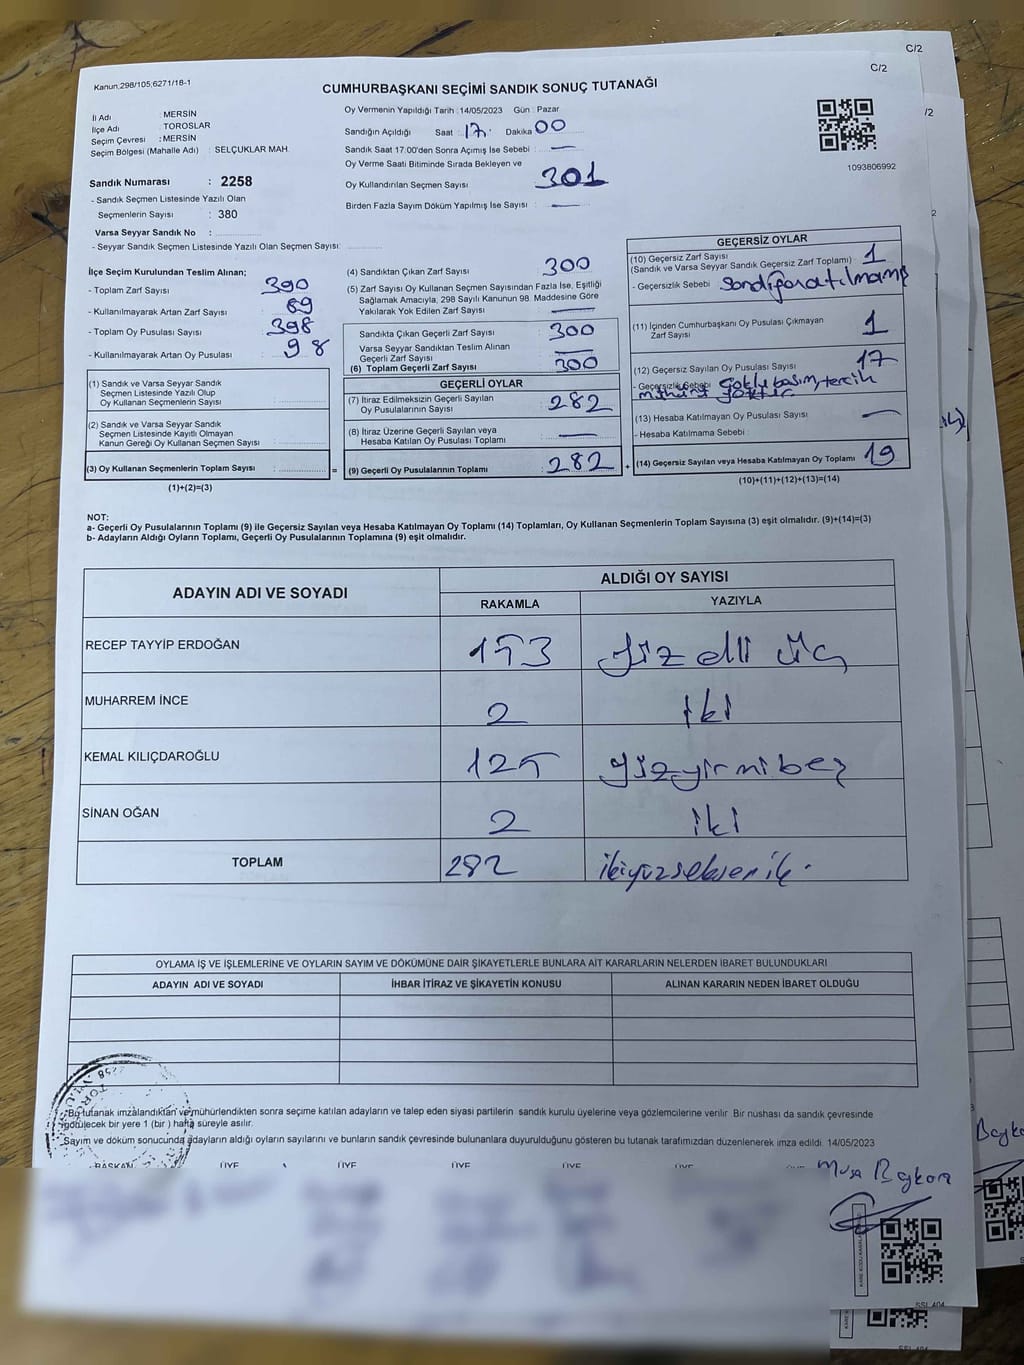 C/2
C/2
Kanun;298/105;6271/18-1
CUMHURBAŞKANI SEÇİMİ SANDIK SONUÇ TUTANAĞI
İl Adı : MERSİN
İlçe Adı : TOROSLAR
Seçim Çevresi : MERSİN
Seçim Bölgesi (Mahalle Adı) : SELÇUKLAR MAH.
Sandık Numarası : 2258
- Sandık Seçmen Listesinde Yazılı Olan
Seçmenlerin Sayısı : 380
Varsa Seyyar Sandık No :
- Seyyar Sandık Seçmen Listesinde Yazılı Olan Seçmen Sayısı:
Oy Vermenin Yapıldığı Tarih :14/05/2023 Gün : Pazar
Sandığın Açıldığı Saat : 17. Dakika 00
Sandık Saat 17:00'den Sonra Açımış İse Sebebi : —
Oy Verme Saati Bitiminde Sırada Bekleyen ve
Oy Kullandırılan Seçmen Sayısı 301
Birden Fazla Sayım Döküm Yapılmış İse Sayısı : —
1093806992
İlçe Seçim Kurulundan Teslim Alınan;
- Toplam Zarf Sayısı : 390
- Kullanılmayarak Artan Zarf Sayısı : 89
- Toplam Oy Pusulası Sayısı : 398
- Kullanılmayarak Artan Oy Pusulası : 98
(1) Sandık ve Varsa Seyyar Sandık
Seçmen Listesinde Yazılı Olup
Oy Kullanan Seçmenlerin Sayısı :
(2) Sandık ve Varsa Seyyar Sandık
Seçmen Listesinde Kayıtlı Olmayan
Kanun Gereği Oy Kullanan Seçmen Sayısı :
(3) Oy Kullanan Seçmenlerin Toplam Sayısı : =
(1)+(2)=(3)
(4) Sandıktan Çıkan Zarf Sayısı : 300
(5) Zarf Sayısı Oy Kullanan Seçmen Sayısından Fazla İse, Eşitliği
Sağlamak Amacıyla, 298 Sayılı Kanunun 98. Maddesine Göre
Yakılarak Yok Edilen Zarf Sayısı : —
Sandıkta Çıkan Geçerli Zarf Sayısı : 300
Varsa Seyyar Sandıktan Teslim Alınan
Geçerli Zarf Sayısı : —
(6) Toplam Geçerli Zarf Sayısı : 300
GEÇERLİ OYLAR
(7) İtiraz Edilmeksizin Geçerli Sayılan
Oy Pusulalarının Sayısı : 282
(8) İtiraz Üzerine Geçerli Sayılan veya
Hesaba Katılan Oy Pusulası Toplamı : —
(9) Geçerli Oy Pusulalarının Toplamı : 282 +
GEÇERSİZ OYLAR
(10) Geçersiz Zarf Sayısı : 1
(Sandık ve Varsa Seyyar Sandık Geçersiz Zarf Toplamı)
- Geçersizlik Sebebi : Sandığa atılmamış
(11) İçinden Cumhurbaşkanı Oy Pusulası Çıkmayan
Zarf Sayısı : 1
(12) Geçersiz Sayılan Oy Pusulası Sayısı : 17
- Geçersizlik Sebebi çoklu basım, tercih
mührü yoktur
(13) Hesaba Katılmayan Oy Pusulası Sayısı : —
- Hesaba Katılmama Sebebi :
(14) Geçersiz Sayılan veya Hesaba Katılmayan Oy Toplamı : 19
(10)+(11)+(12)+(13)=(14)
NOT:
a- Geçerli Oy Pusulalarının Toplamı (9) ile Geçersiz Sayılan veya Hesaba Katılmayan Oy Toplamı (14) Toplamları, Oy Kullanan Seçmenlerin Toplam Sayısına (3) eşit olmalıdır. (9)+(14)=(3)
b- Adayların Aldığı Oyların Toplamı, Geçerli Oy Pusulalarının Toplamına (9) eşit olmalıdır.
ADAYIN ADI VE SOYADI ALDIĞI OY SAYISI
RAKAMLA YAZIYLA
RECEP TAYYİP ERDOĞAN 153 yüz elli üç
MUHARREM İNCE 2 iki
KEMAL KILIÇDAROĞLU 125 yüzyirmibeş
SİNAN OĞAN 2 iki
TOPLAM 282 ikiyüzseksen iki
OYLAMA İŞ VE İŞLEMLERİNE VE OYLARIN SAYIM VE DÖKÜMÜNE DAİR ŞİKAYETLERLE BUNLARA AİT KARARLARIN NELERDEN İBARET BULUNDUKLARI
ADAYIN ADI VE SOYADI İHBAR İTİRAZ VE ŞİKAYETİN KONUSU ALINAN KARARIN NEDEN İBARET OLDUĞU
*Bu tutanak imzalandıktan ve mühürlendikten sonra seçime katılan adayların ve talep eden siyasi partilerin sandık kurulu üyelerine veya gözlemcilerine verilir. Bir nushası da sandık çevresinde
görülecek bir yere 1 (bir ) hafta süreyle asılır.
*Sayım ve döküm sonucunda adayların aldığı oyların sayılarını ve bunların sandık çevresinde bulunanlara duyurulduğunu gösteren bu tutanak tarafımızdan düzenlenerek imza edildi. 14/05/2023
BAŞKAN ÜYE ÜYE ÜYE ÜYE ÜYE
Musa Baykara
SSL 404